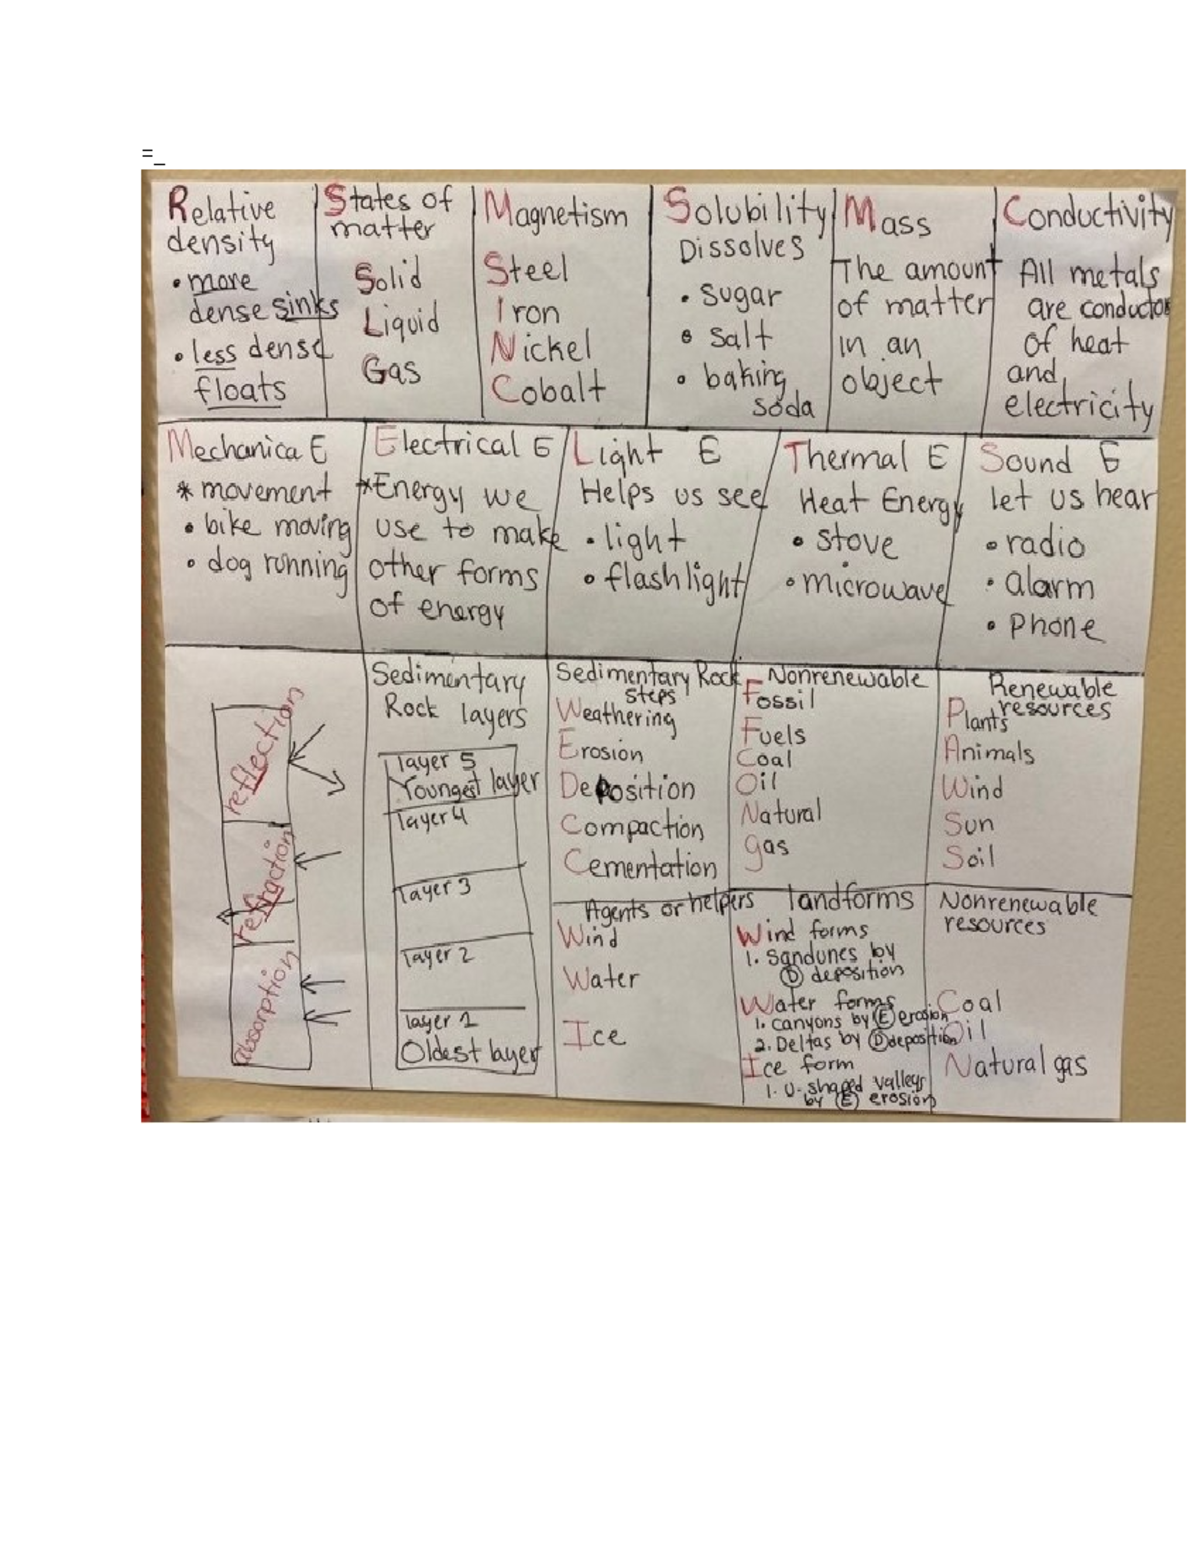 =_
Relative
density
• more
dense sinks
• less dense
floats
States of
matter
Solid
Liquid
Gas
Magnetism
Steel
Iron
Nickel
Cobalt
Solubility
Dissolves
• sugar
• salt
• baking
soda
Mass
The amount
of matter
in an
object
Conductivity
All metals
are conductor
of heat
and
electricity
Mechanica E
* movement
• bike moving
• dog running
Electrical E
*Energy we
use to make
other forms
of energy
Light E
Helps us see
• light
• flashlight
Thermal E
Heat Energy
• stove
• microwave
Sound E
let us hear
• radio
• alarm
• phone
reflection
refraction
absorption
Sedimentary
Rock layers
layer 5
Youngest layer
layer 4
layer 3
layer 2
layer 1
Oldest layer
Sedimentary Rock
steps
Weathering
Erosion
Deposition
Compaction
Cementation
Nonrenewable
Fossil
Fuels
Coal
Oil
Natural
gas
Renewable
resources
Plants
Animals
Wind
Sun
Soil
Agents or helpers
Wind
Water
Ice
landforms
Wind forms
1. Sandunes by
D deposition
Water forms
1. canyons by E erosion
2. Deltas by D deposition
Ice form
1. U-shaped valleys
by E erosion
Nonrenewable
resources
Coal
Oil
Natural gas